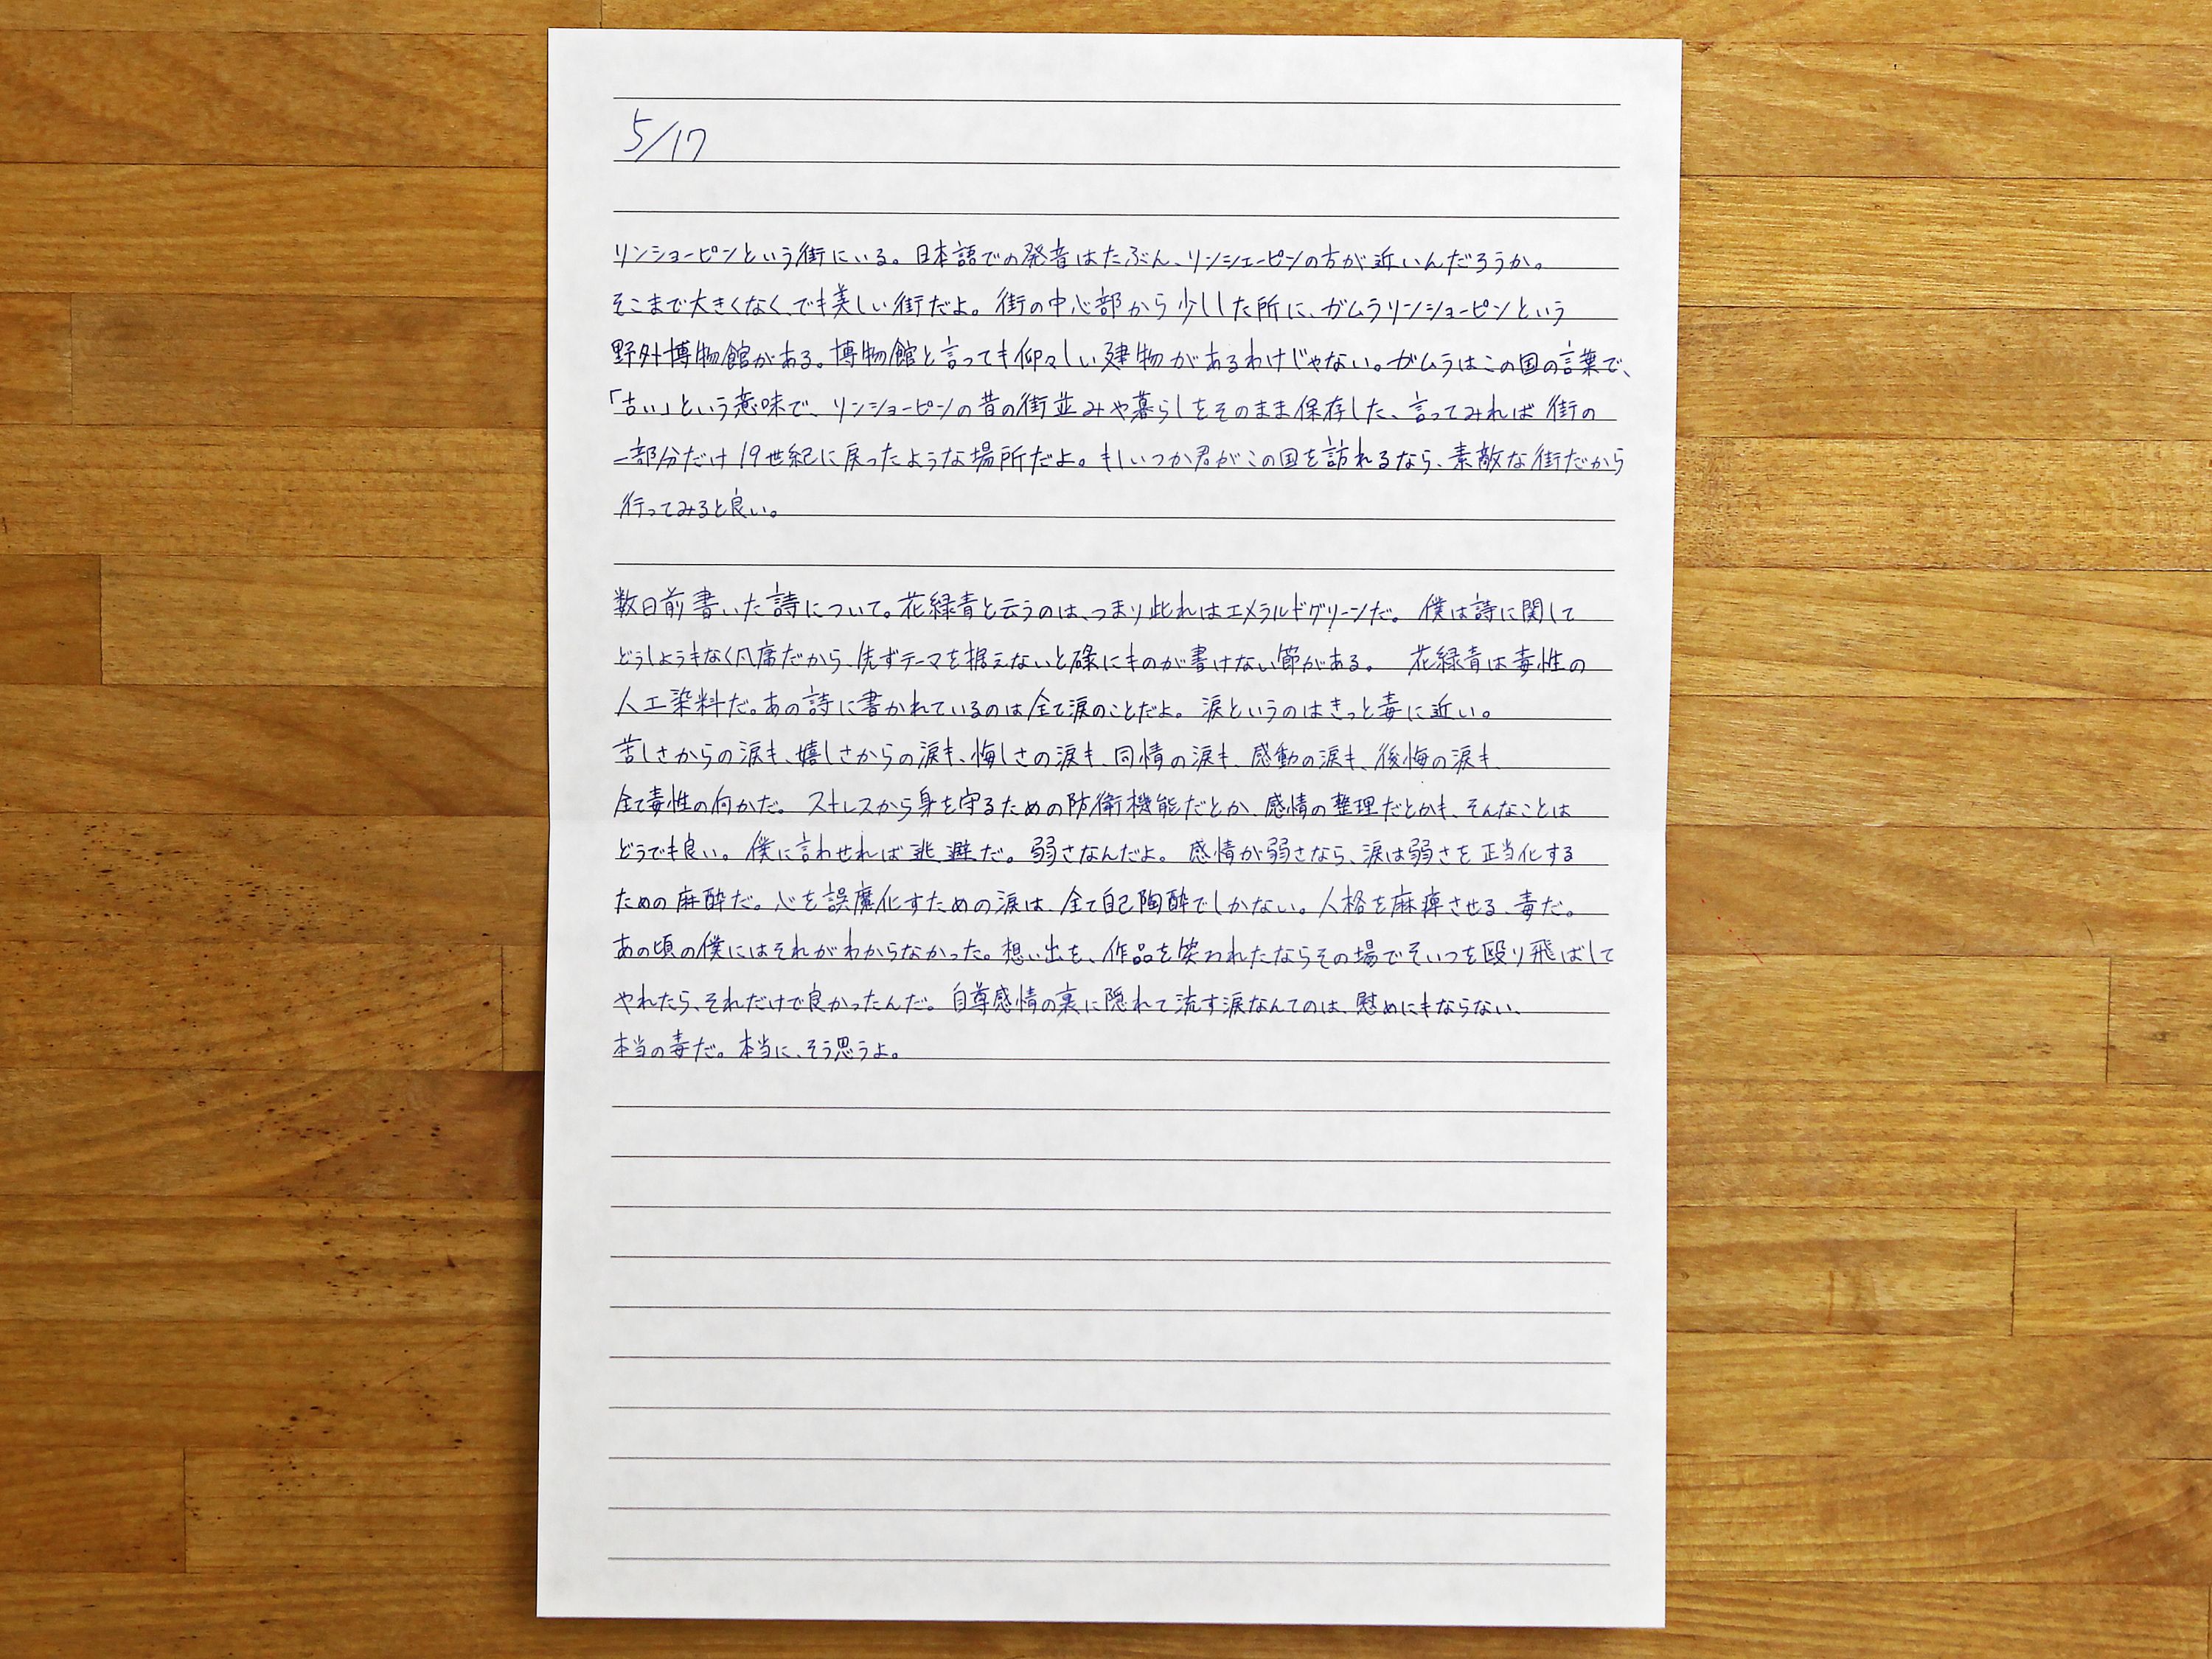 5/17
リンショーピンという街にいる。日本語での発音はたぶん、リンシェーピンの方が近いんだろうか。
そこまで大きくなく、でも美しい街だよ。街の中心部から少しした所に、ガムラリンショーピンという
野外博物館がある。博物館と言っても仰々しい建物があるわけじゃない。ガムラはこの国の言葉で、
「古い」という意味で、リンショーピンの昔の街並みや暮らしをそのまま保存した、言ってみれば街の
一部分だけ19世紀に戻ったような場所だよ。もしいつか君がこの国を訪れるなら、素敵な街だから
行ってみると良い。
数日前書いた詩について。花緑青と云うのは、つまり此れはエメラルドグリーンだ。僕は詩に関して
どうしようもなく凡庸だから、先ずテーマを据えないと碌にものが書けない節がある。 花緑青は毒性の
人工染料だ。あの詩に書かれているのは全て涙のことだよ。涙というのはきっと毒に近い。
苦しさからの涙も、嬉しさからの涙も、悔しさの涙も、同情の涙も、感動の涙も、後悔の涙も、
全て毒性の何かだ。ストレスから身を守るための防衛機能だとか、感情の整理だとかも、そんなことは
どうでも良い。僕に言わせれば逃避だ。弱さなんだよ。感情が弱さなら、涙は弱さを正当化する
ための麻酔だ。心を誤魔化すための涙は、全て自己陶酔でしかない。人格を麻痺させる、毒だ。
あの頃の僕にはそれがわからなかった。想い出を、作品を笑われたならその場でそいつを殴り飛ばして
やれたら、それだけで良かったんだ。自尊感情の裏に隠れて流す涙なんてのは、慰めにもならない、
本当の毒だ。本当に、そう思うよ。